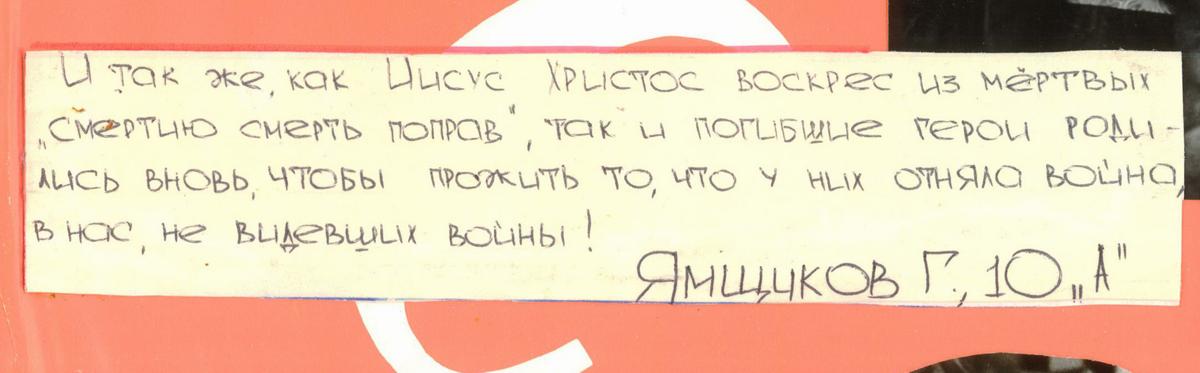 И так же, как Иисус Христос воскрес из мёртвых
„смертию смерть поправ", так и погибшие герои роди-
лись вновь, чтобы прожить то, что у них отняла война,
в нас, не видевших войны!
Ямщиков Г., 10 „А"